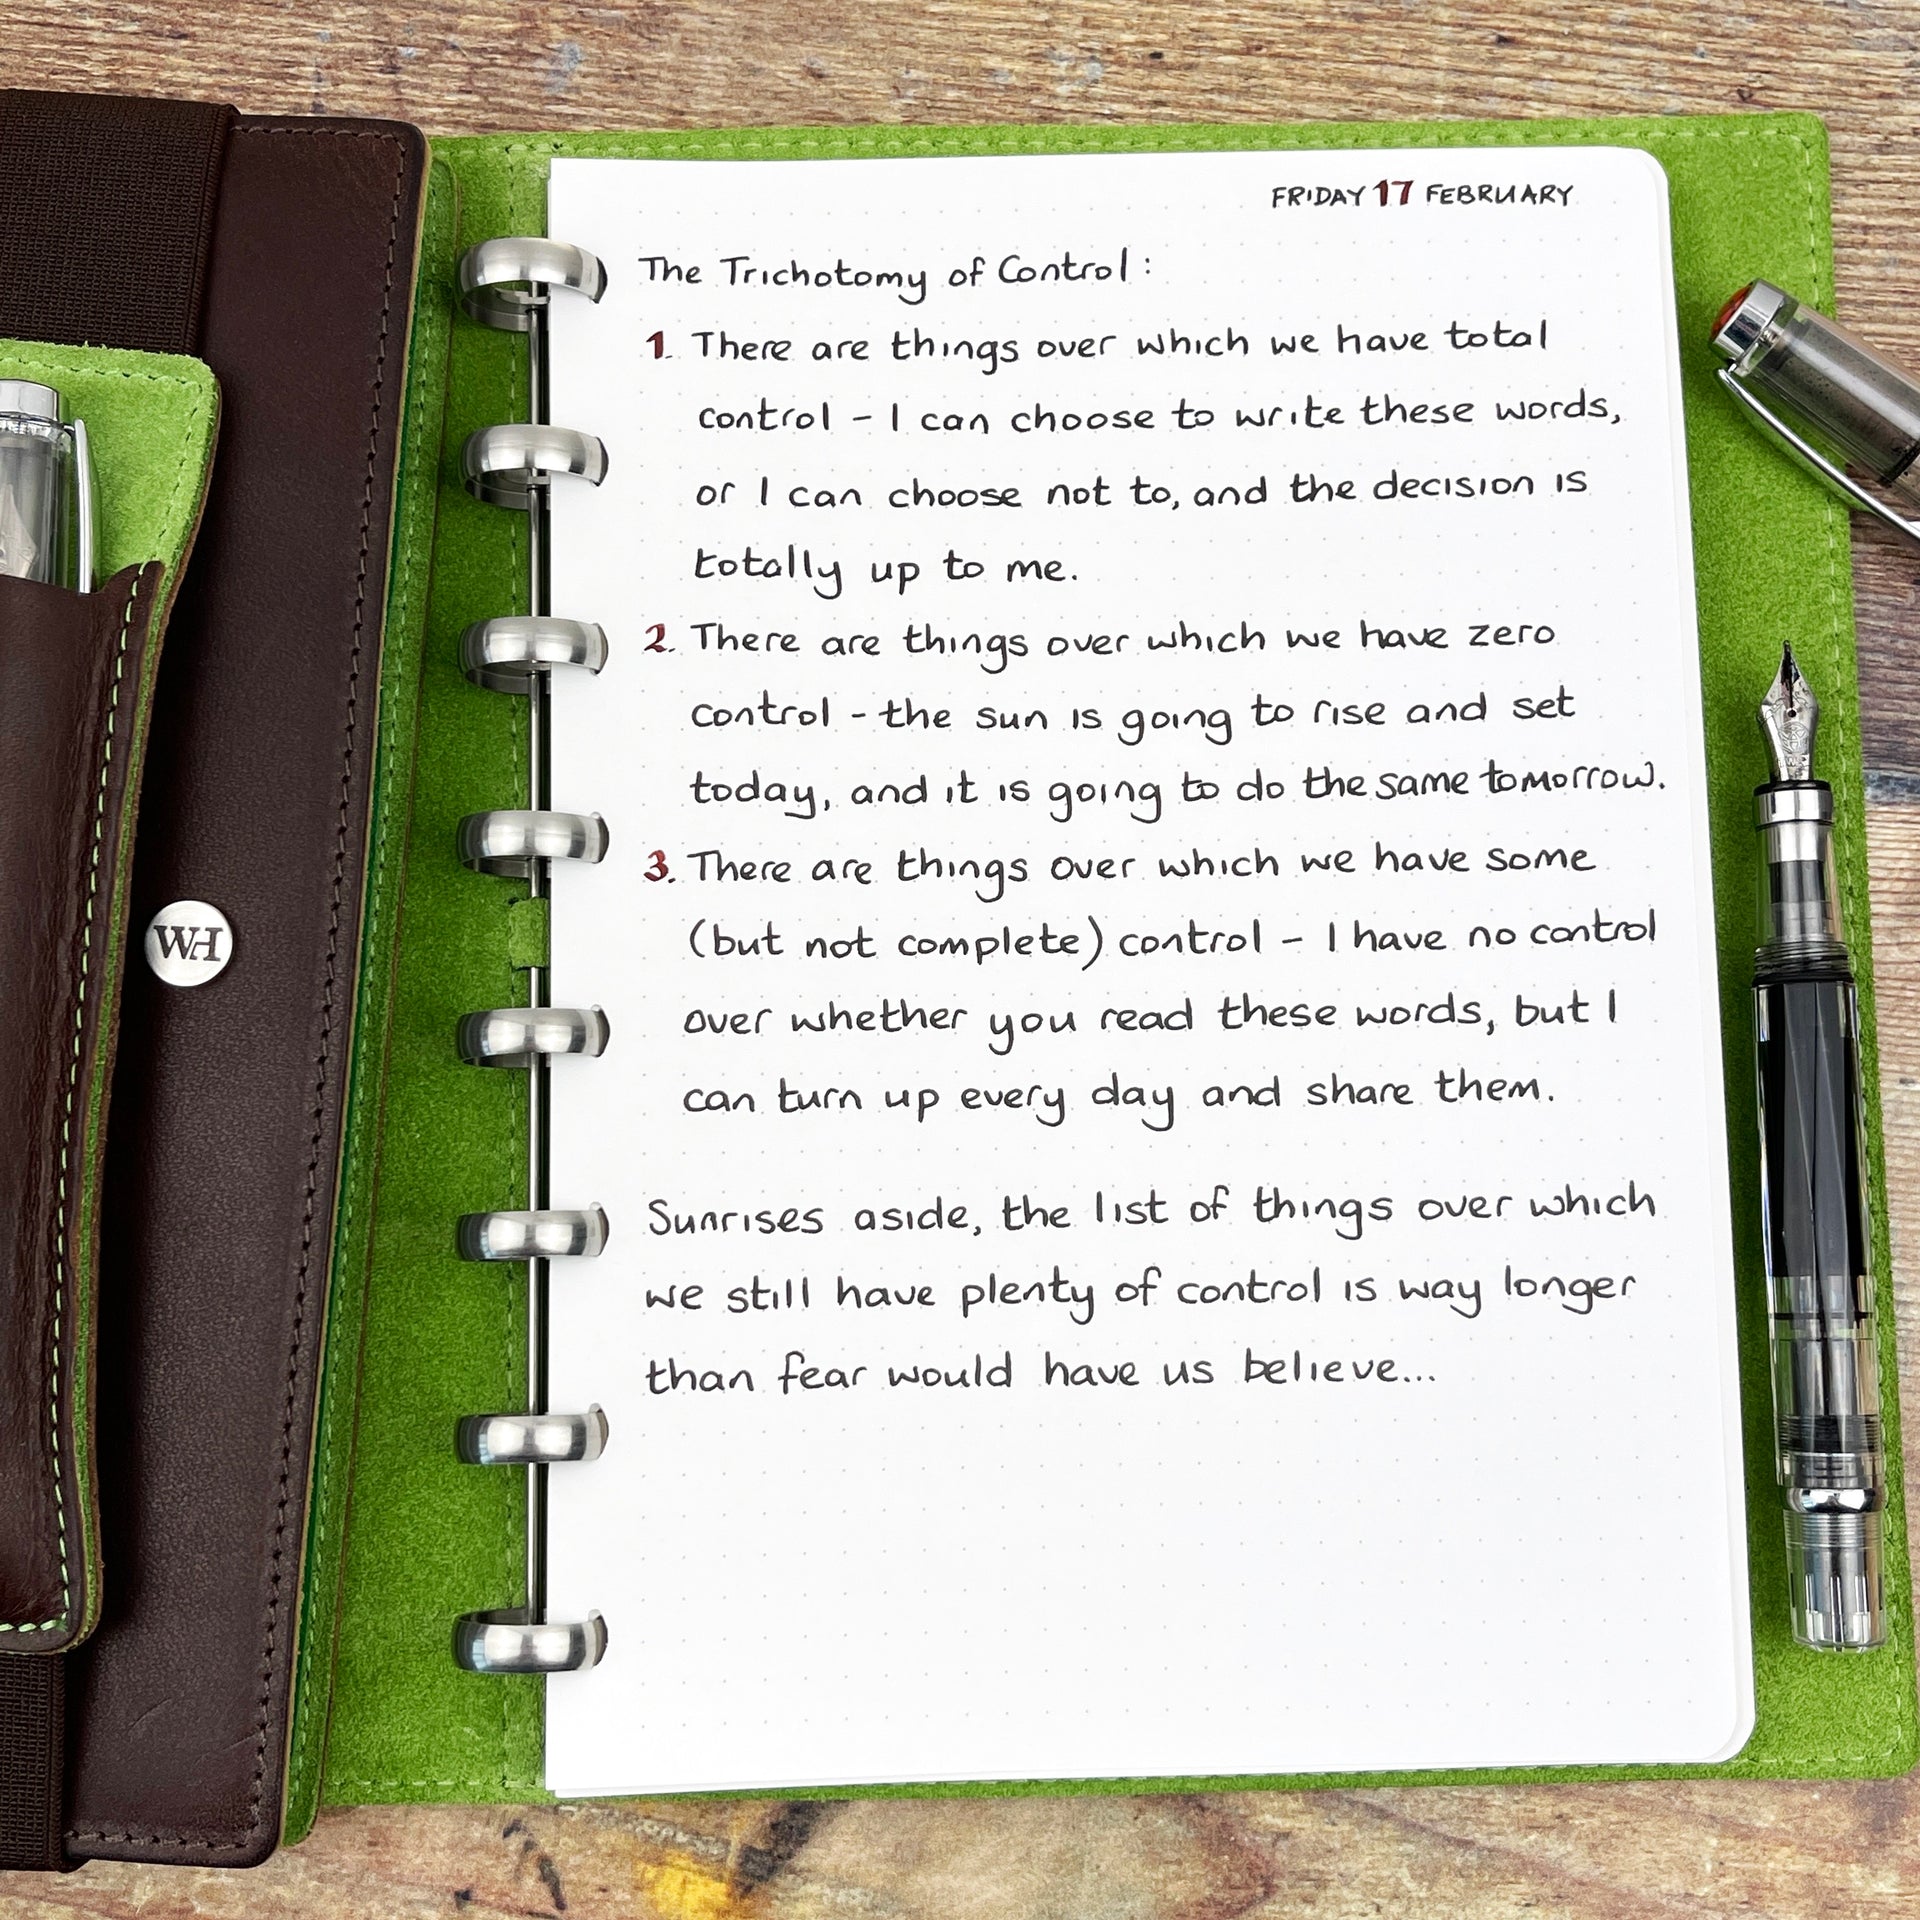 FRIDAY 17 FEBRUARY
The Trichotomy of Control:
1. There are things over which we have total
control - I can choose to write these words,
or I can choose not to, and the decision is
totally up to me.
2. There are things over which we have zero
control - the sun is going to rise and set
today, and it is going to do the same tomorrow.
3. There are things over which we have some
(but not complete) control - I have no control
over whether you read these words, but I
can turn up every day and share them.
Sunrises aside, the list of things over which
we still have plenty of control is way longer
than fear would have us believe...
WH